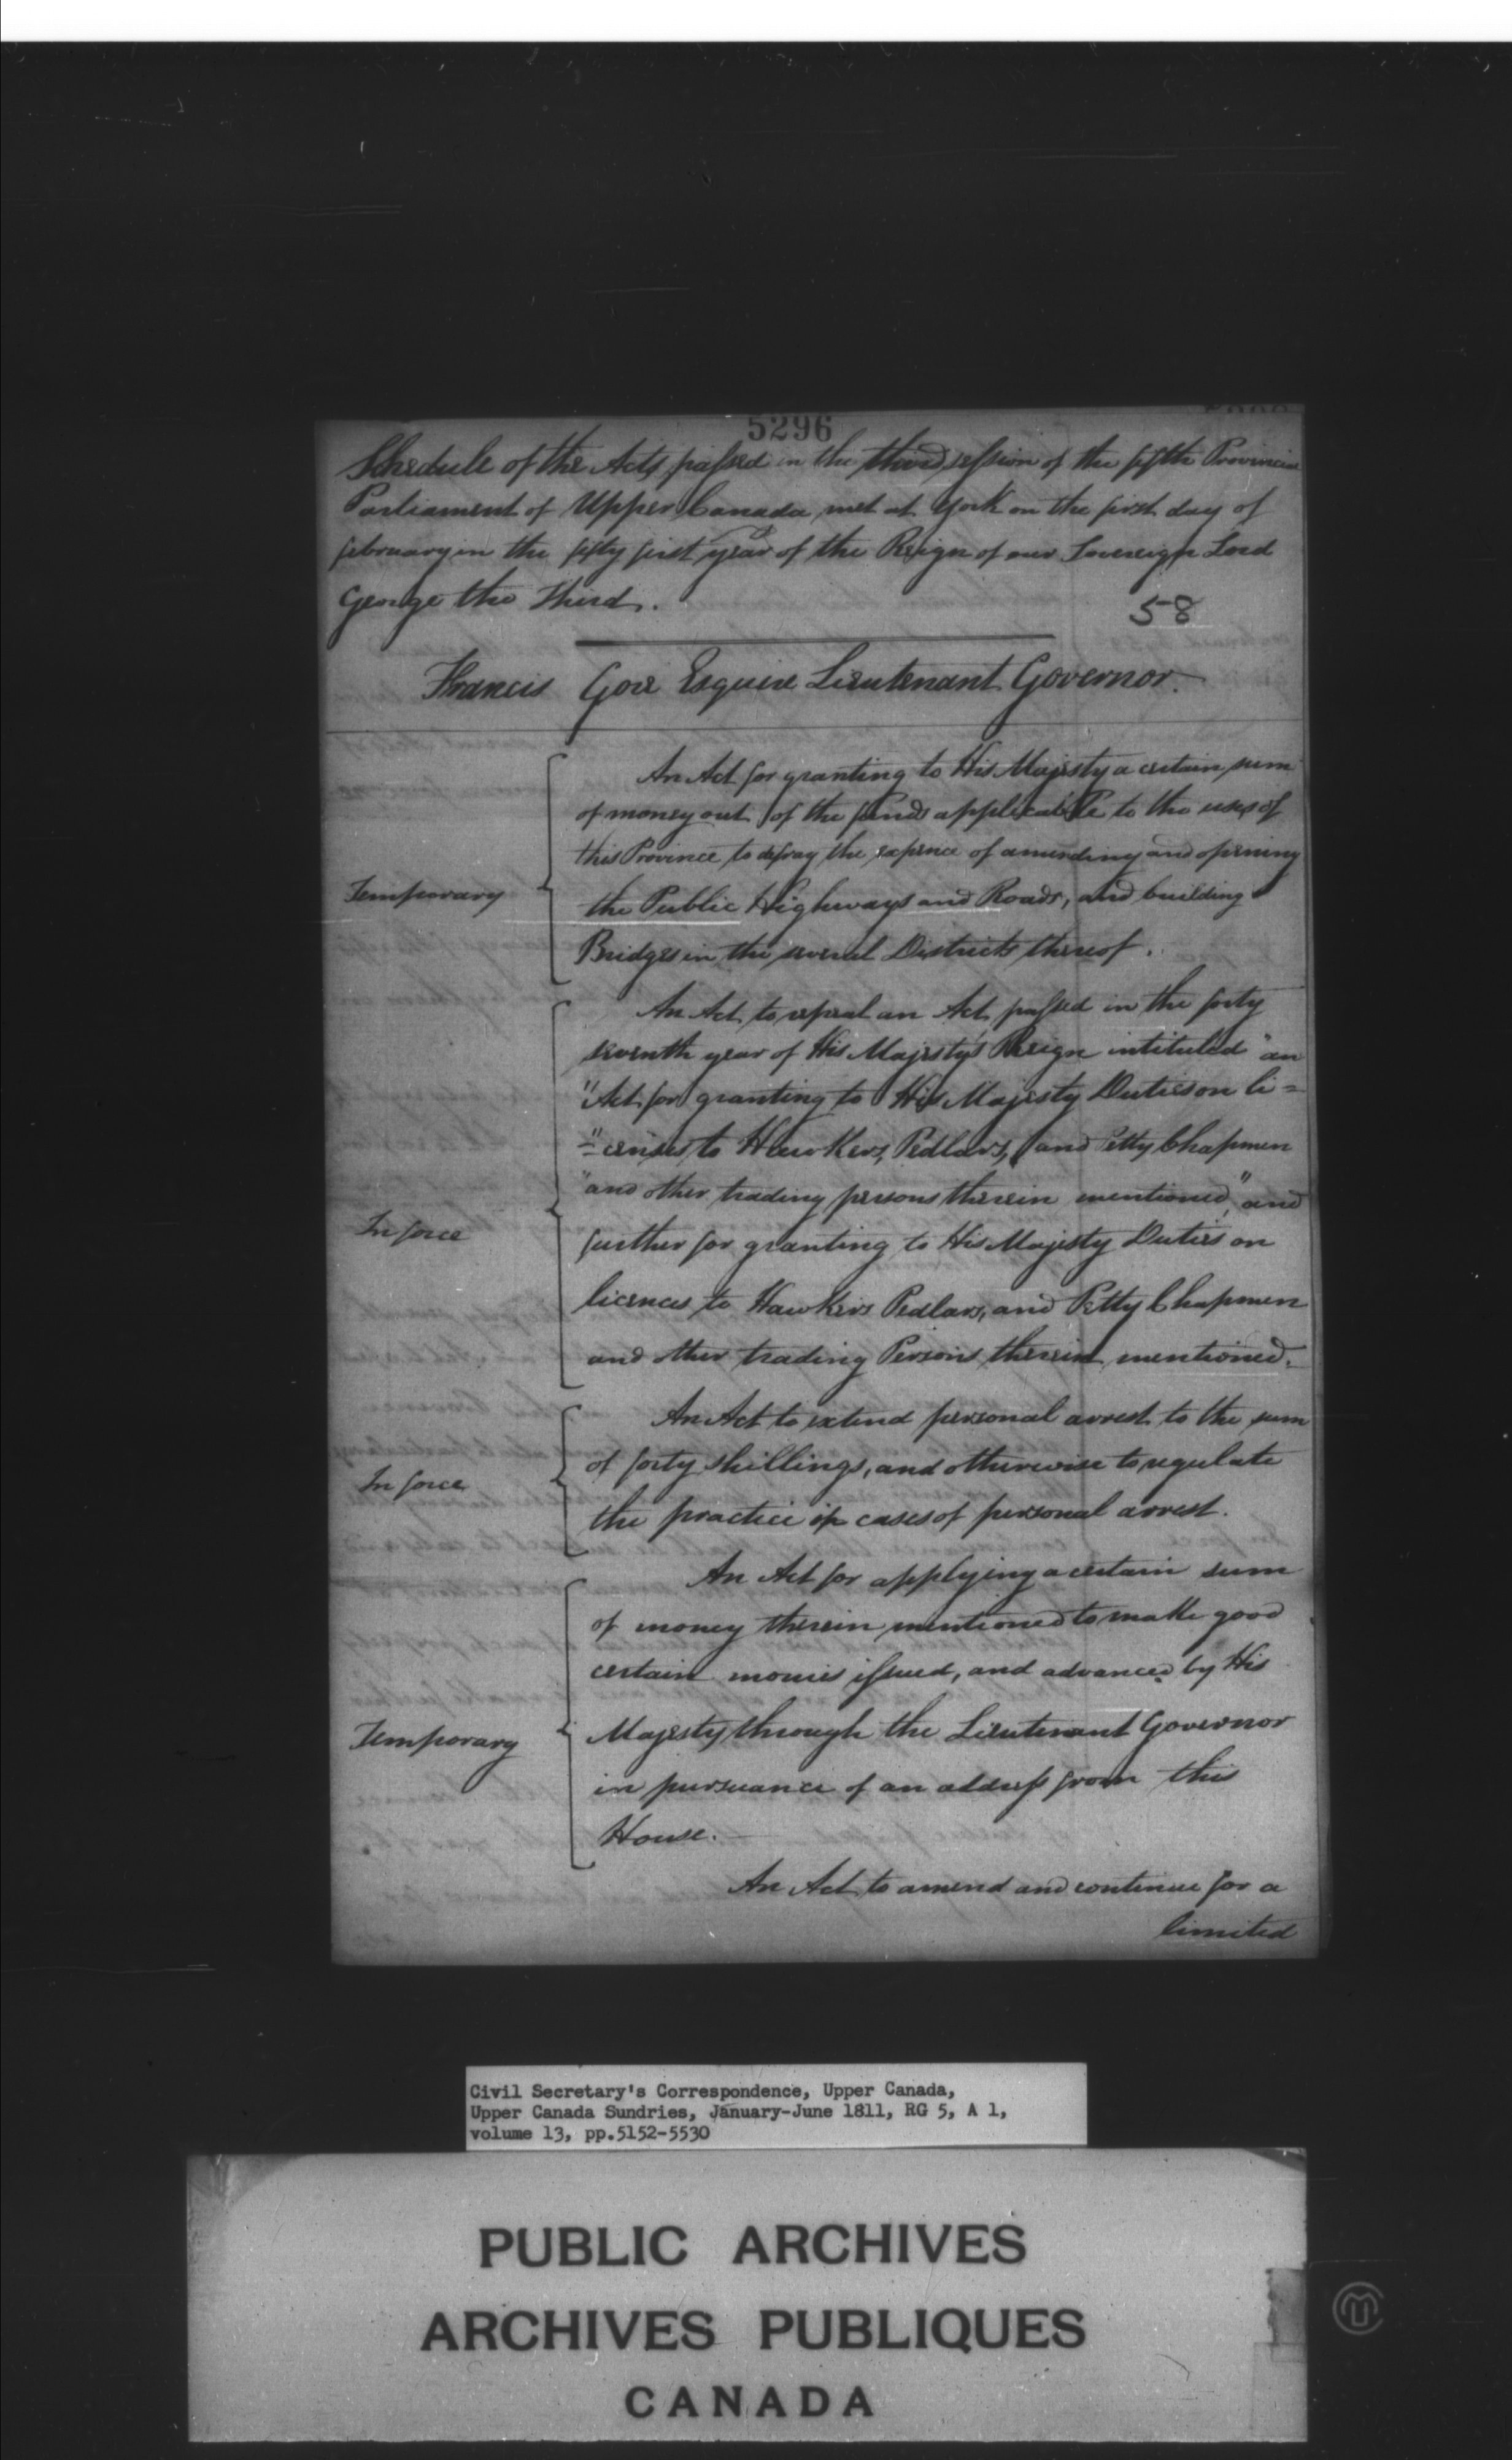 5296
Schedule of the Acts passed in the third session of the fifth Provincial
Parliament of Upper Canada met at York on the first day of
february in the fifty first year of the Reign of our Sovereign Lord
George the Third.
58
Francis Gore Esquire Lieutenant Governor.
An Act for granting to His Majesty a certain sum
of money out of the funds applicable to the uses of
this Province to defray the expence of amending and opening
Temporary
the Public Highways and Roads, and building
Bridges in the several Districts thereof.
An Act to repeal an Act passed in the forty
seventh year of His Majesty's Reign intituled "an
"Act for granting to His Majesty Duties on li=
"=censes to Hawkers, Pedlars, and Petty Chapmen
"and other trading persons therein mentioned," and
In force
further for granting to His Majesty Duties on
licences to Hawkers Pedlars, and Petty Chapmen
and other trading Persons therein mentioned.
An Act to extend personal arrest to the sum
of forty shillings, and otherwise to regulate
In force
the practice in cases of personal arrest.
An Act for applying a certain sum
of money therein mentioned to make good
certain monies issued, and advanced by His
Temporary
Majesty through the Lieutenant Governor
in pursuance of an address from this
House.
An Act to amend and continue for a
limited
Civil Secretary's Correspondence, Upper Canada,
Upper Canada Sundries, January-June 1811, RG 5, A 1,
volume 13, pp.5152-5530
PUBLIC ARCHIVES
ARCHIVES PUBLIQUES
CANADA